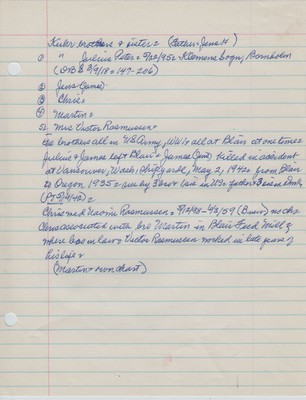 Kirk brothers & sister = (Father = Jens H)
1) " Julius Peter = 5/22/95 = Klemens Sogn, Bornholm
(OB & 3/9/18 = 147-206)
2) Jens (James)
3) Chris =
4) Martin =
5) Mrs Victor Rasmussen =
the brothers all in US Army, WW 1 = all at Blair at one time =
Julius & James left Blair = James (Jens) killed in accident
at Vancouver, Wash. Shipyard, May 2, 1942 = from Blair
to Oregon 1935 = sur by 3 bro & 1 sis in US = father & 3 sis in Denk,
Chris md Naomi Rasmussen = no ch =
Chris associated with bro Martin in Blair Feed Mill &
where bro in law = Victor Rasmussen worked in late years of
his life =
(Martin = own chart)